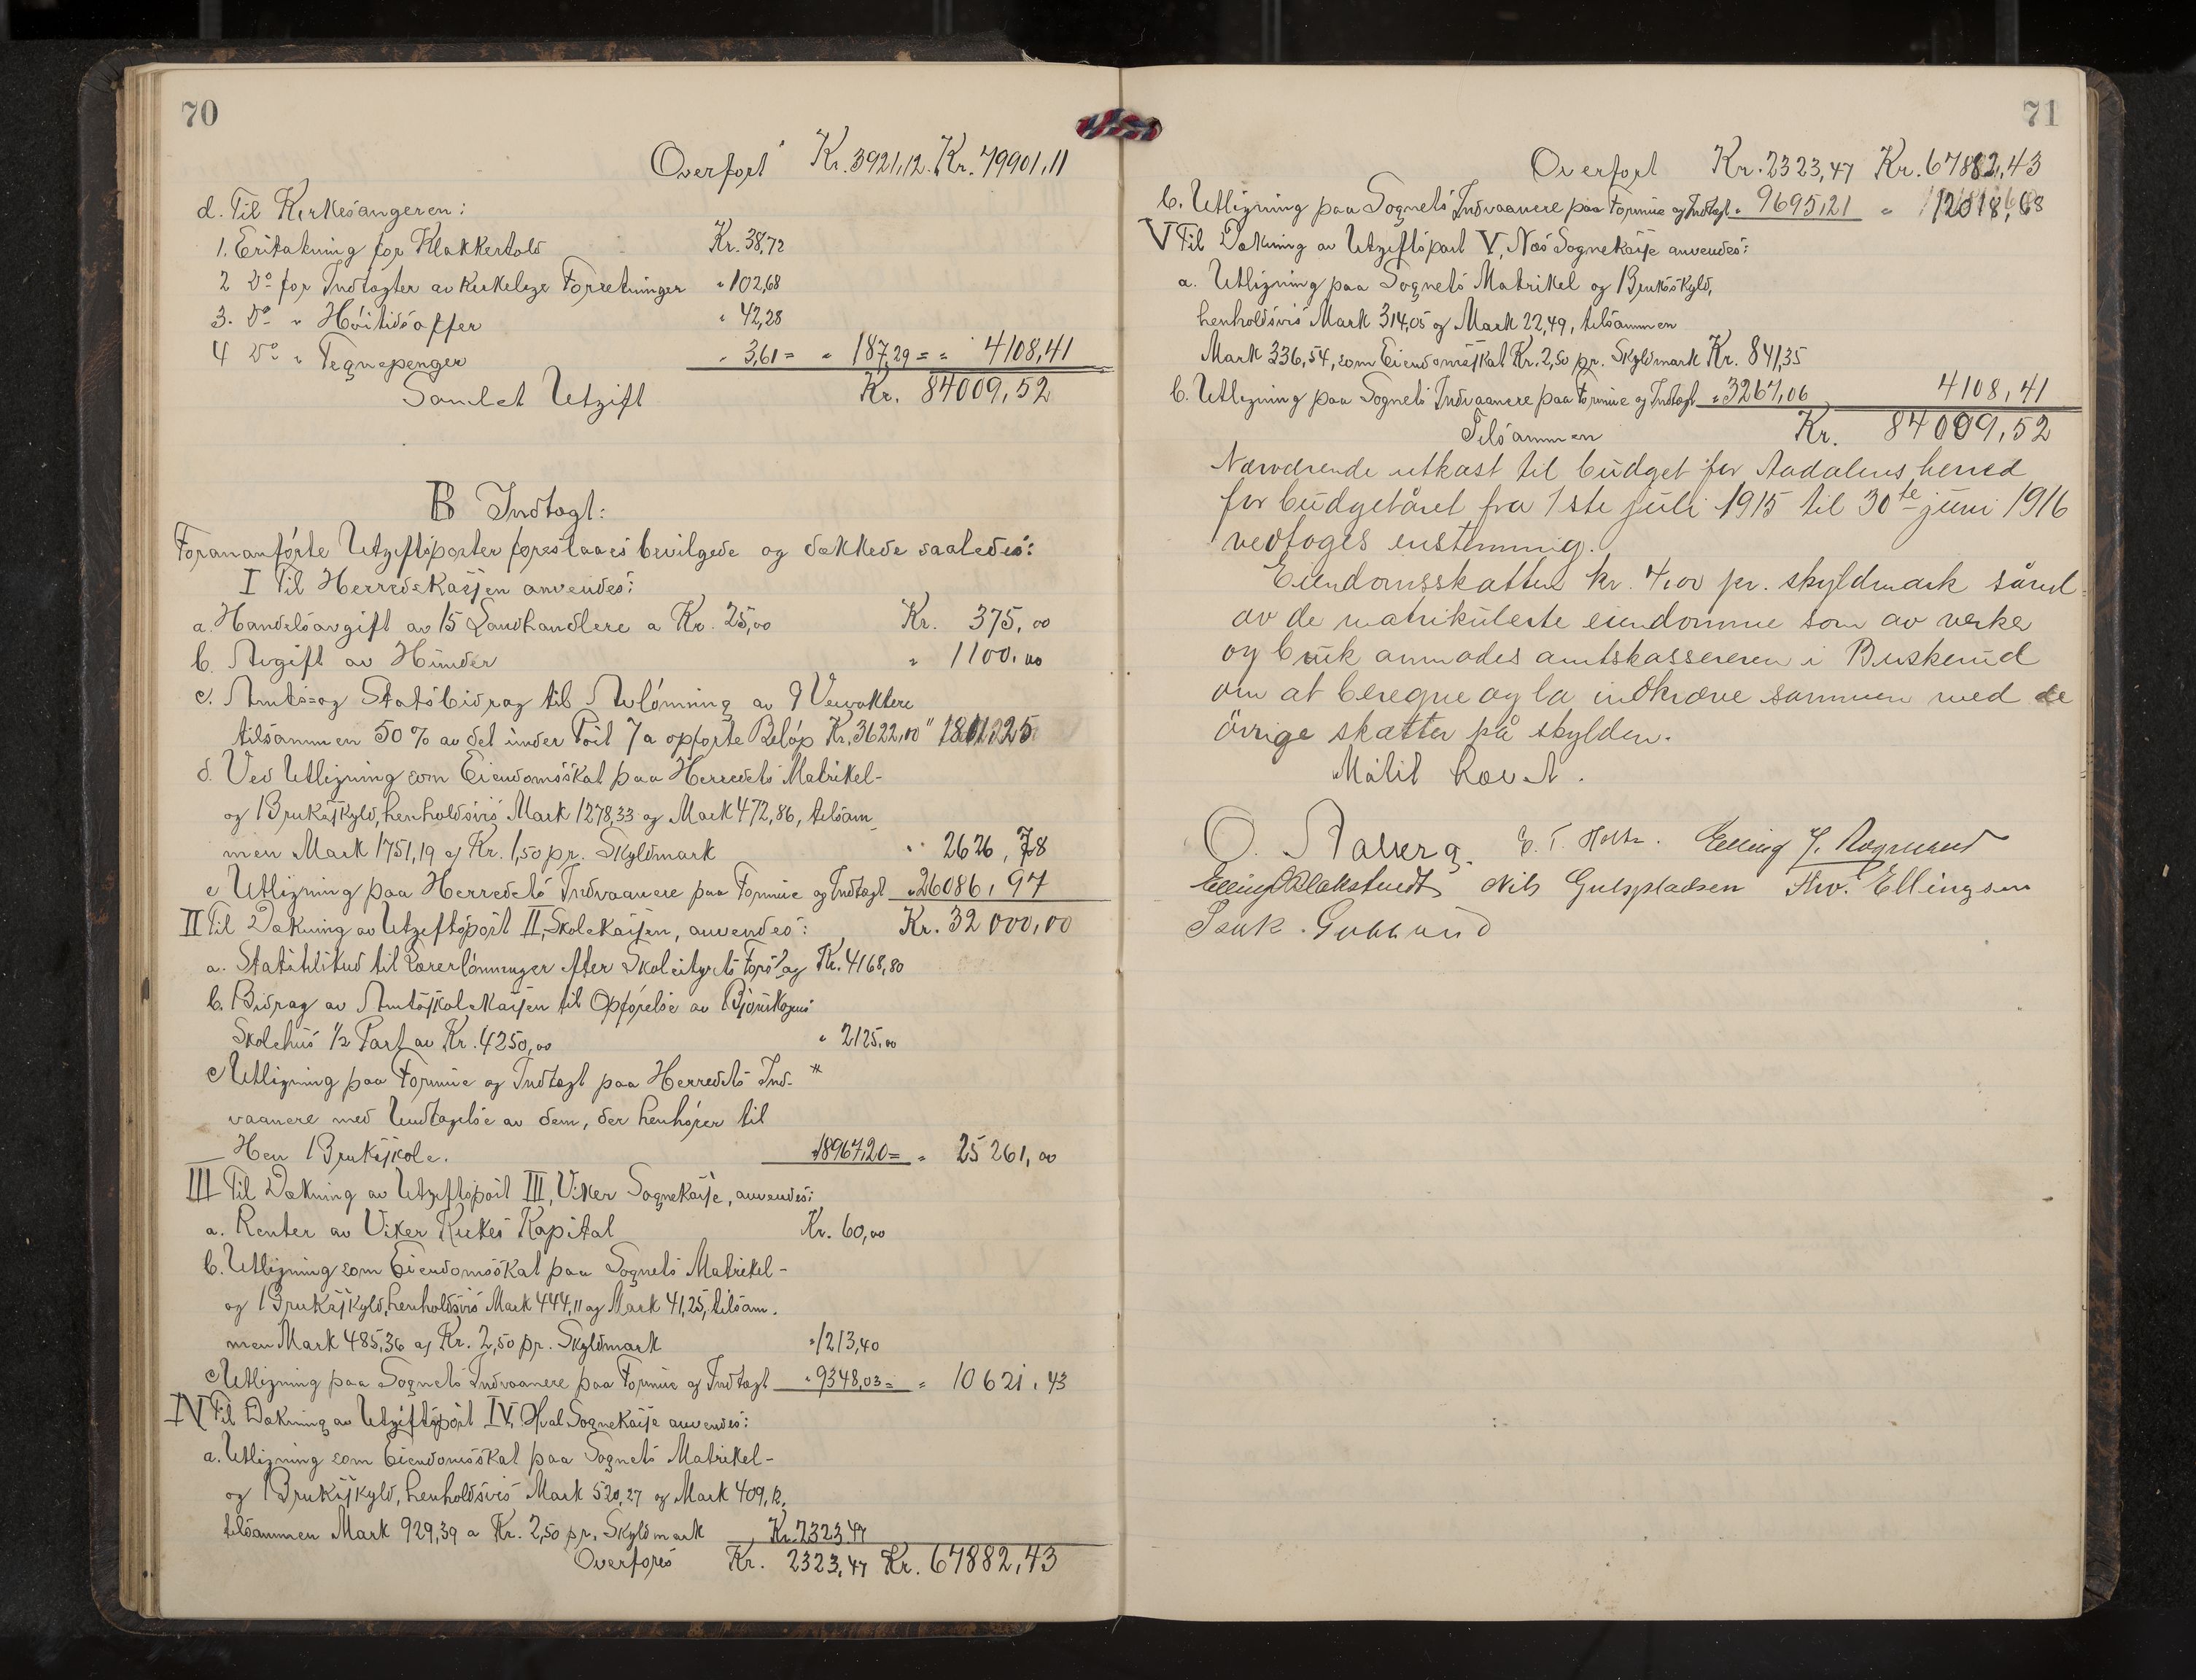 70
Overført Kr. 3921,12. Kr. 79901,11
d. Til Kirkesangeren:
1. Erstatning for Klokkertold Kr. 38,72
2 Do for Indtægter av Kirkelige Forretninger " 102,68
3. Do " Høitidsoffer " 42,28
4 Do " Tegnepenger " 3,61 = " 187,29 = " 4108,41
Samlet Utgift Kr. 84009,52
B Indtægt:
Forananførte Utgiftsposter foreslaaes bevilgede og dækkede saaledes:
I Til Herredskassen anvendes:
a. Handelsavgift av 15 Landhandlere a Kr. 25,00 Kr. 375,00
b. Avgift av Hunder " 1100,00
c. Amts= og Statsbidrag til Avlønning av 9 Veivoktere
tilsammen 50 % av det under Post 7a opførte Beløp Kr. 3622,00 "
d. Ved Utligning som Eiendomsskat paa Herredets Matrikel-
og Bruksskyld, henholdsvis Mark 1278,33 og Mark 472,86, tilsam-
men Mark 1751,19 a Kr. 1,50 pr. Skyldmark " 2626,78
e Utligning paa Herredets Indvaanere paa Formue og Indtægt " 26086,97
II Til Dækning av Utgiftspost II, Skolekassen, anvendes: Kr. 32000,00
a. Statstilskud til Lærerlønninger efter Skolestyrets Forslag Kr. 4168,80
b. Bidrag av Amtsskolekassen til Opførelse av
Skolehus 1/2 Part av Kr. 4250,00 " 2125,00
c Utligning paa Formue og Indtægt paa Herredets Ind-
vaanere med Undtagelse av dem, der henhører til
Hen Bruksskole. 18967,20 = " 25261,00
III Til Dækning av Utgiftspost III, Viker Sognekasse, anvendes:
a. Renter av Viker Kirkes Kapital Kr. 60,00
b. Utligning som Eiendomsskat paa Sognets Matrikel-
og Bruksskyld, henholdsvis Mark 444,11 og Mark 41,25, tilsam-
men Mark 485,36 a Kr. 2,50 pr. Skyldmark " 1213,40
c Utligning paa Sognets Indvaanere paa Formue og Indtægt " 9348,03 = " 10621,43
IV Til Dækning av Utgiftspost IV, Hval Sognekasse anvendes:
a. Utligning som Eiendomsskat paa Sognets Matrikel-
og Bruksskyld, henholdsvis Mark 520,27 og Mark 409,12,
tilsammen Mark 929,39 a Kr. 2,50 pr. Skyldmark Kr. 2323,47
Overføres Kr. 2323,47 Kr. 67882,43
71
Overført Kr. 2323,47 Kr. 67882,43
b. Utligning paa Sognets Indvaanere paa Formue og Indtægt " 9695,21 " 12018,68
V Til Dækning av Utgiftspost V, Næs Sognekasse anvendes:
a. Utligning paa Sognets Matrikel og Bruksskyld,
henholdsvis Mark 314,05 og Mark 22,49, tilsammen
Mark 336,54, som Eiendomsskat Kr. 2,50 pr. Skyldmark Kr. 841,35
b. Utligning paa Sognets Indvaanere paa Formue og Indtægt " 3267,06 4108,41
Tilsammen Kr. 84009,52
Nærværende utkast til budget for Aadalens herred
for budgetåret fra 1ste juli 1915 til 30te juni 1916
vedtoges enstemmig.
Eiendomsskatten kr. 4,00 pr. skyldmark såvel
av de matrikulerte eiendomme som av verker
og bruk anmodes amtskassereren i Buskerud
om at beregne og la indkræve sammen med de
övrige skatter på skylden.
Møtet hævet.
O. Aaberg. E. T. Holte.
Elling Blakstvedt Nils Gulspladsen Thv. Ellingsen
Isak